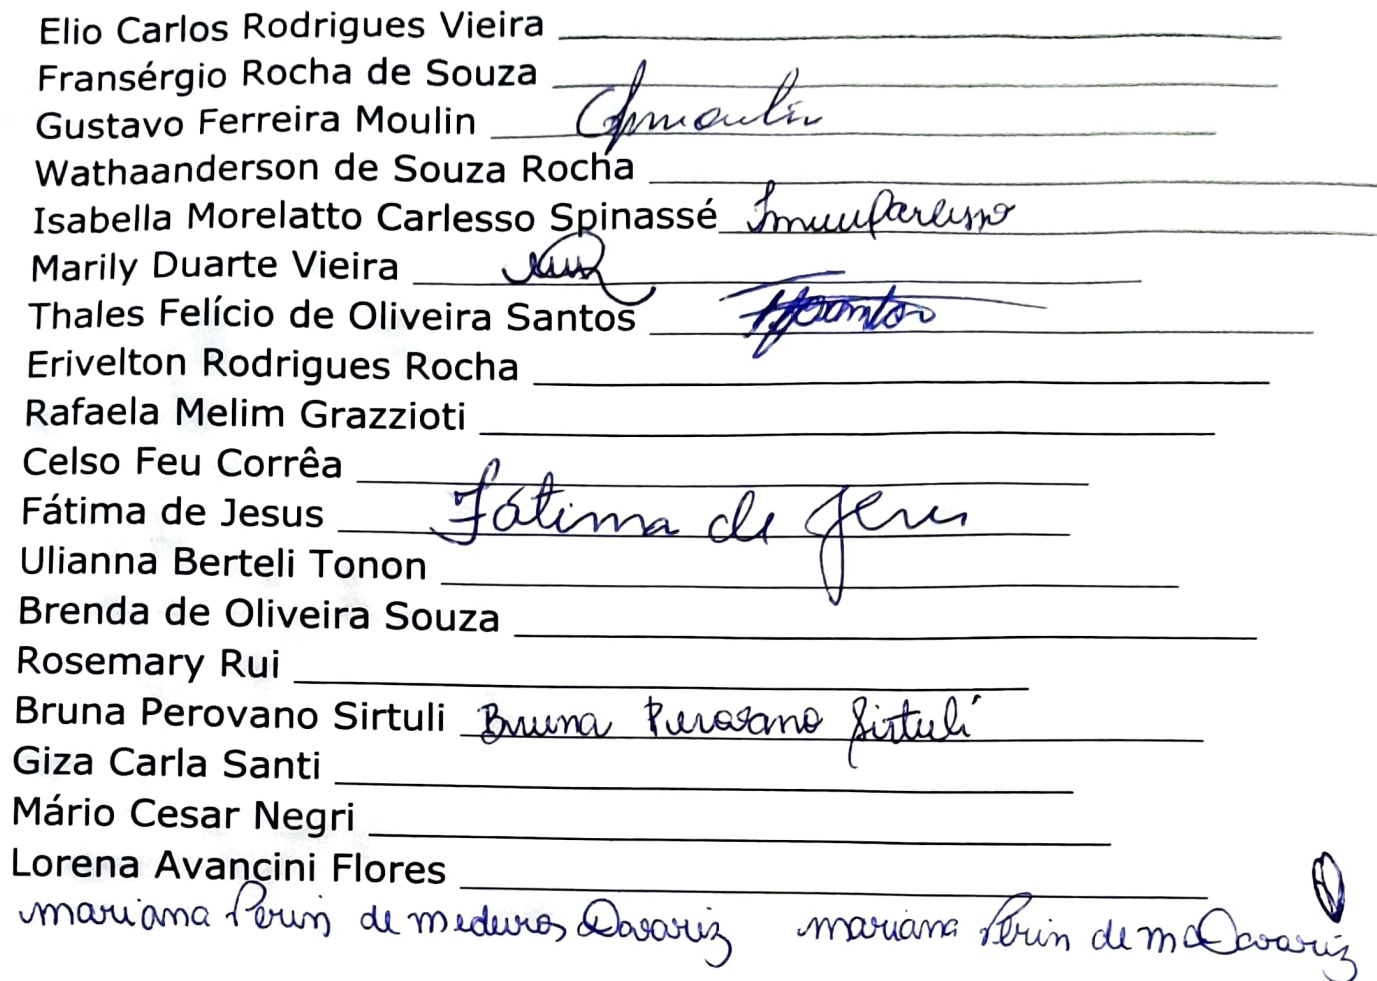 Elio Carlos Rodrigues Vieira
Fransérgio Rocha de Souza
Gustavo Ferreira Moulin
Wathaanderson de Souza Rocha
Isabella Morelatto Carlesso Spinassé
Marily Duarte Vieira
Thales Felício de Oliveira Santos
Erivelton Rodrigues Rocha
Rafaela Melim Grazzioti
Celso Feu Corrêa
Fátima de Jesus Fátima de Jesus
Ulianna Berteli Tonon
Brenda de Oliveira Souza
Rosemary Rui
Bruna Perovano Sirtuli Bruna Perovano Sirtuli
Giza Carla Santi
Mário Cesar Negri
Lorena Avancini Flores
mariana Perin de medeiros Davariz mariana Perin de m Davariz